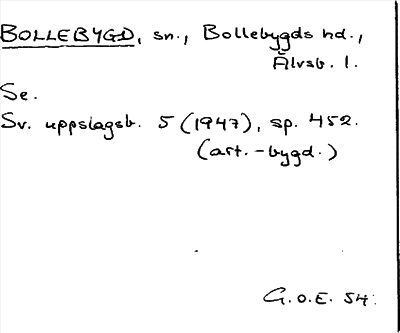 BOLLEBYGD, sn., Bollebygds hd.,
Älvsb. l.
Se.
Sv. uppslagsb. 5 (1947), sp. 452.
(art. -bygd.)
G.O.E. 54.